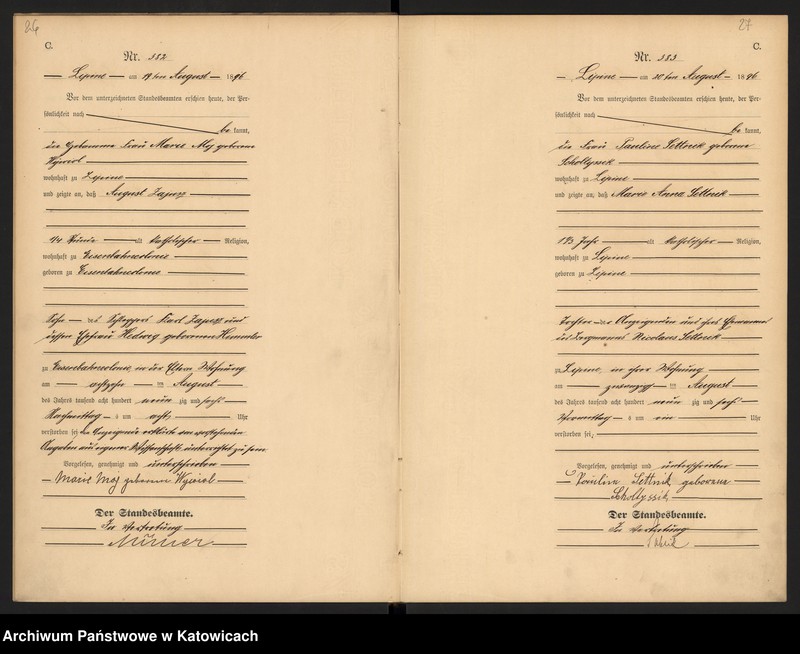 26
C.
Nr. 382
Lipine am 19ten August 1896
Vor dem unterzeichneten Standesbeamten erschien heute, der Per-
sönlichkeit nach
be kannt,
die Hebamme Frau Marie Moj geborene
wohnhaft zu Lipine
und zeigte an, daß August
alt katholischer Religion,
wohnhaft zu Eisenbahnkolonie
geboren zu Eisenbahnkolonie
Sohn des Schleppers Karl und
dessen Ehefrau Hedwig geborenen
zu Eisenbahnkolonie in der Eltern Wohnung
am achtzehn ten August
des Jahres tausend acht hundert neun zig und sechs
Nachmittag s um acht Uhr
verstorben sei, die Anzeigende erklärte von vorstehenden
Angaben aus eigener Wissenschaft unterrichtet zu sein
Vorgelesen, genehmigt und unterschrieben
Marie Moj geborene
Der Standesbeamte.
In Vertretung
27
C.
Nr. 383
Lipine am 20ten August 1896
Vor dem unterzeichneten Standesbeamten erschien heute, der Per-
sönlichkeit nach
be kannt,
die Frau Pauline Settnik geborene
Scholtyssek
wohnhaft zu Lipine
und zeigte an, daß Marie Anna Settnik
Jahr alt katholischer Religion,
wohnhaft zu Lipine
geboren zu Lipine
Tochter der Anzeigenden und ihres Ehemannes
des Bergmanns Nicolaus Settnik
zu Lipine in ihrer Wohnung
am zwanzig ten August
des Jahres tausend acht hundert neun zig und sechs
Vormittag s um ein Uhr
verstorben sei,
Vorgelesen, genehmigt und unterschrieben
Paulina Settnik geborene
Scholtyssik
Der Standesbeamte.
In Vertretung
Archiwum Państwowe w Katowicach